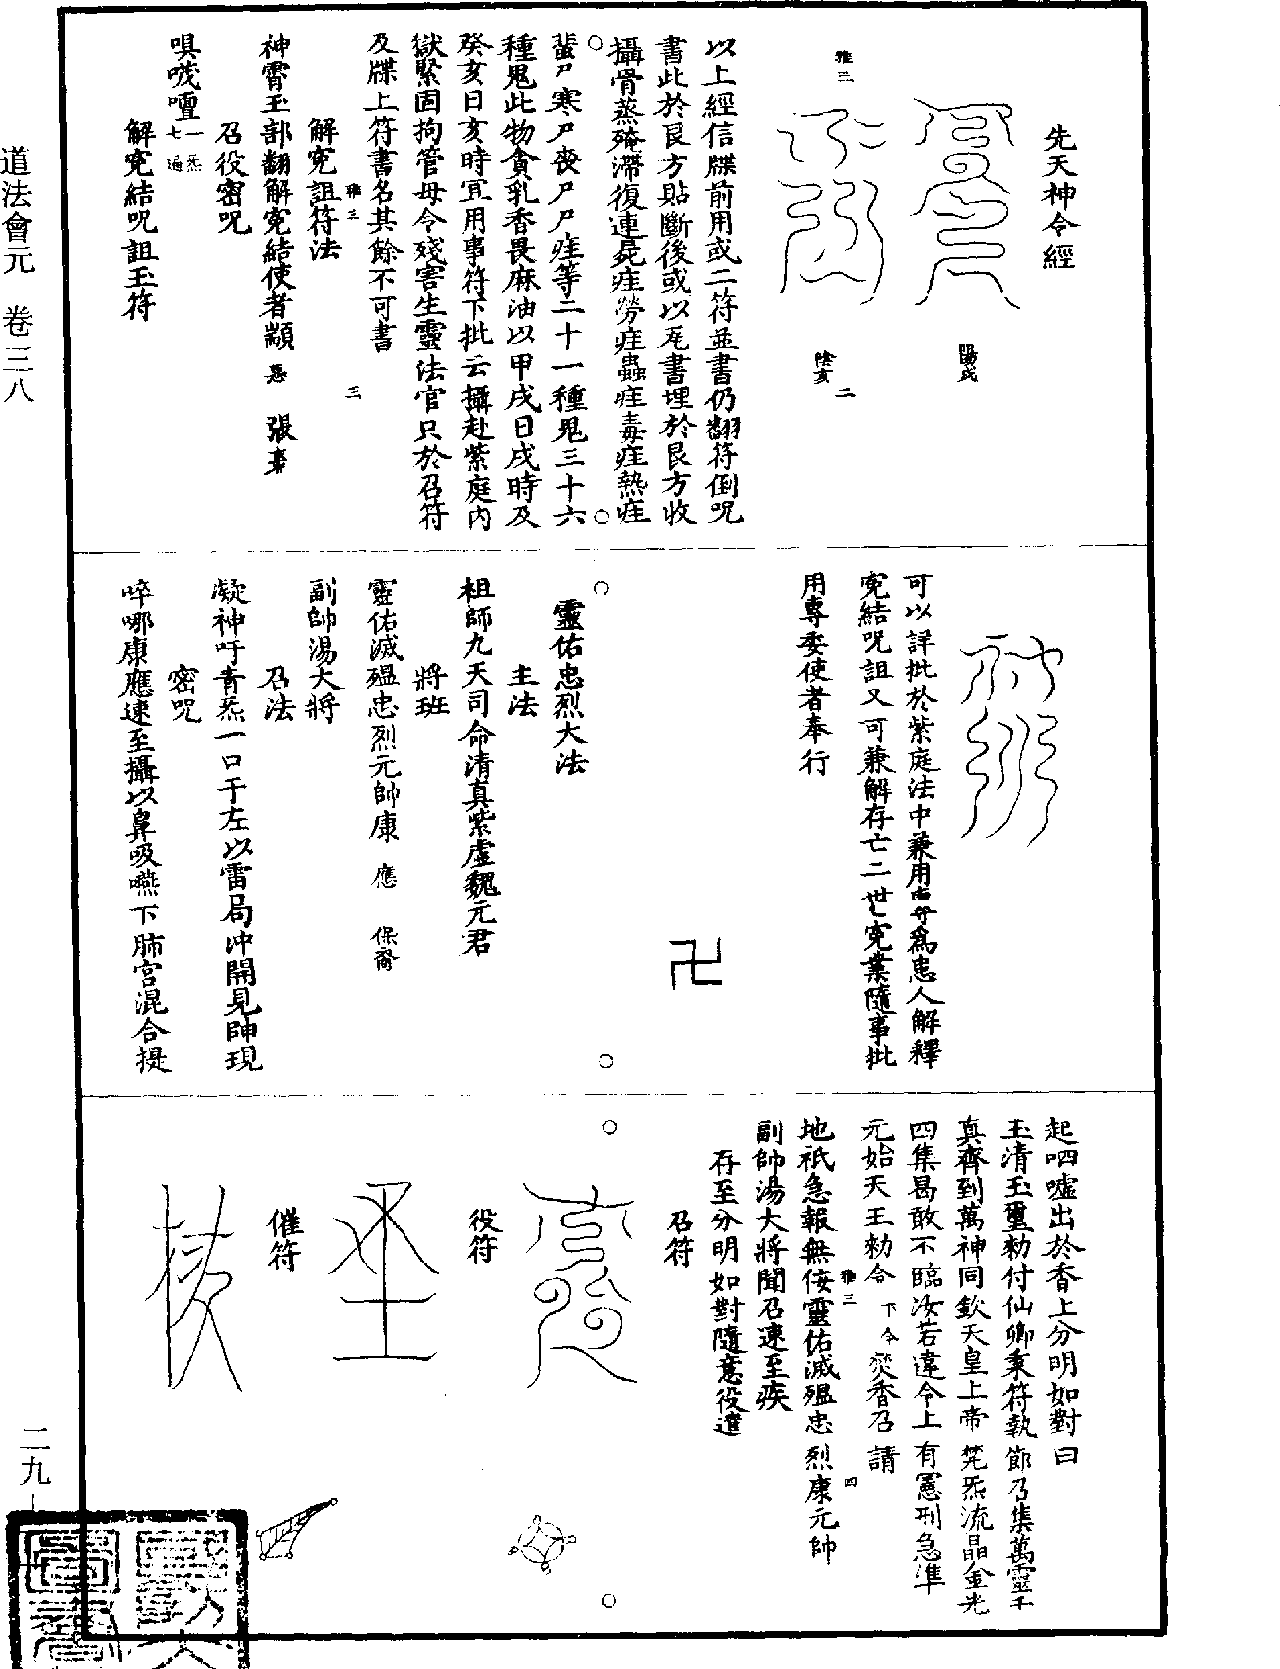 先天神令經
陽戌
雅三
陰亥
二
以上經信牒前用或二符並書仍翻符倒呪
書此於艮方貼斷後或以瓦書埋於艮方收
攝骨蒸殗滯復連屍疰勞疰蟲疰毒疰熱疰
蜚尸寒尸喪尸尸疰等二十一種鬼三十六
種鬼此物貪乳香畏麻油以甲戌日戌時及
癸亥日亥時宜用事符下批云攝赴紫庭內
獄緊固拘管毋令殘害生靈法官只於召符
及牒上符書名其餘不可書
雅三
三
解寃詛符法
神霄玉部翻解寃結使者顓愚 張
召役密呪
唄㘍𠹌一炁七遍
解寃結呪詛玉符
可以詳批於紫庭法中兼用 爲患人解釋
寃結呪詛又可兼解存亡二世寃業隨事批
用專委使者奉行
卍
靈佑忠烈大法
主法
祖師九天司命清真紫虛魏元君
將班
靈佑滅瘟忠烈元帥康 應 保裔
副帥湯大將
召法
凝神吁青炁一口于左以雷局沖開見帥現
密呪
啐哪康應速至攝以鼻吸嚥下肺宮混合提
起呬噓出於香上分明如對曰
玉清玉璽勑付仙卿秉符執節召集萬靈千
真齊到萬神同欽天皇上帝梵炁流晶金光
四集曷敢不臨汝若違令上有憲刑急準
元始天王勑令 下令 焚香召請
地祇急報無佞靈佑滅瘟忠烈康元帥
雅三
四
副帥湯大將聞召速至疾
存至分明如對隨意役遣
召符
役符
催符
道法會元 卷三八
二九